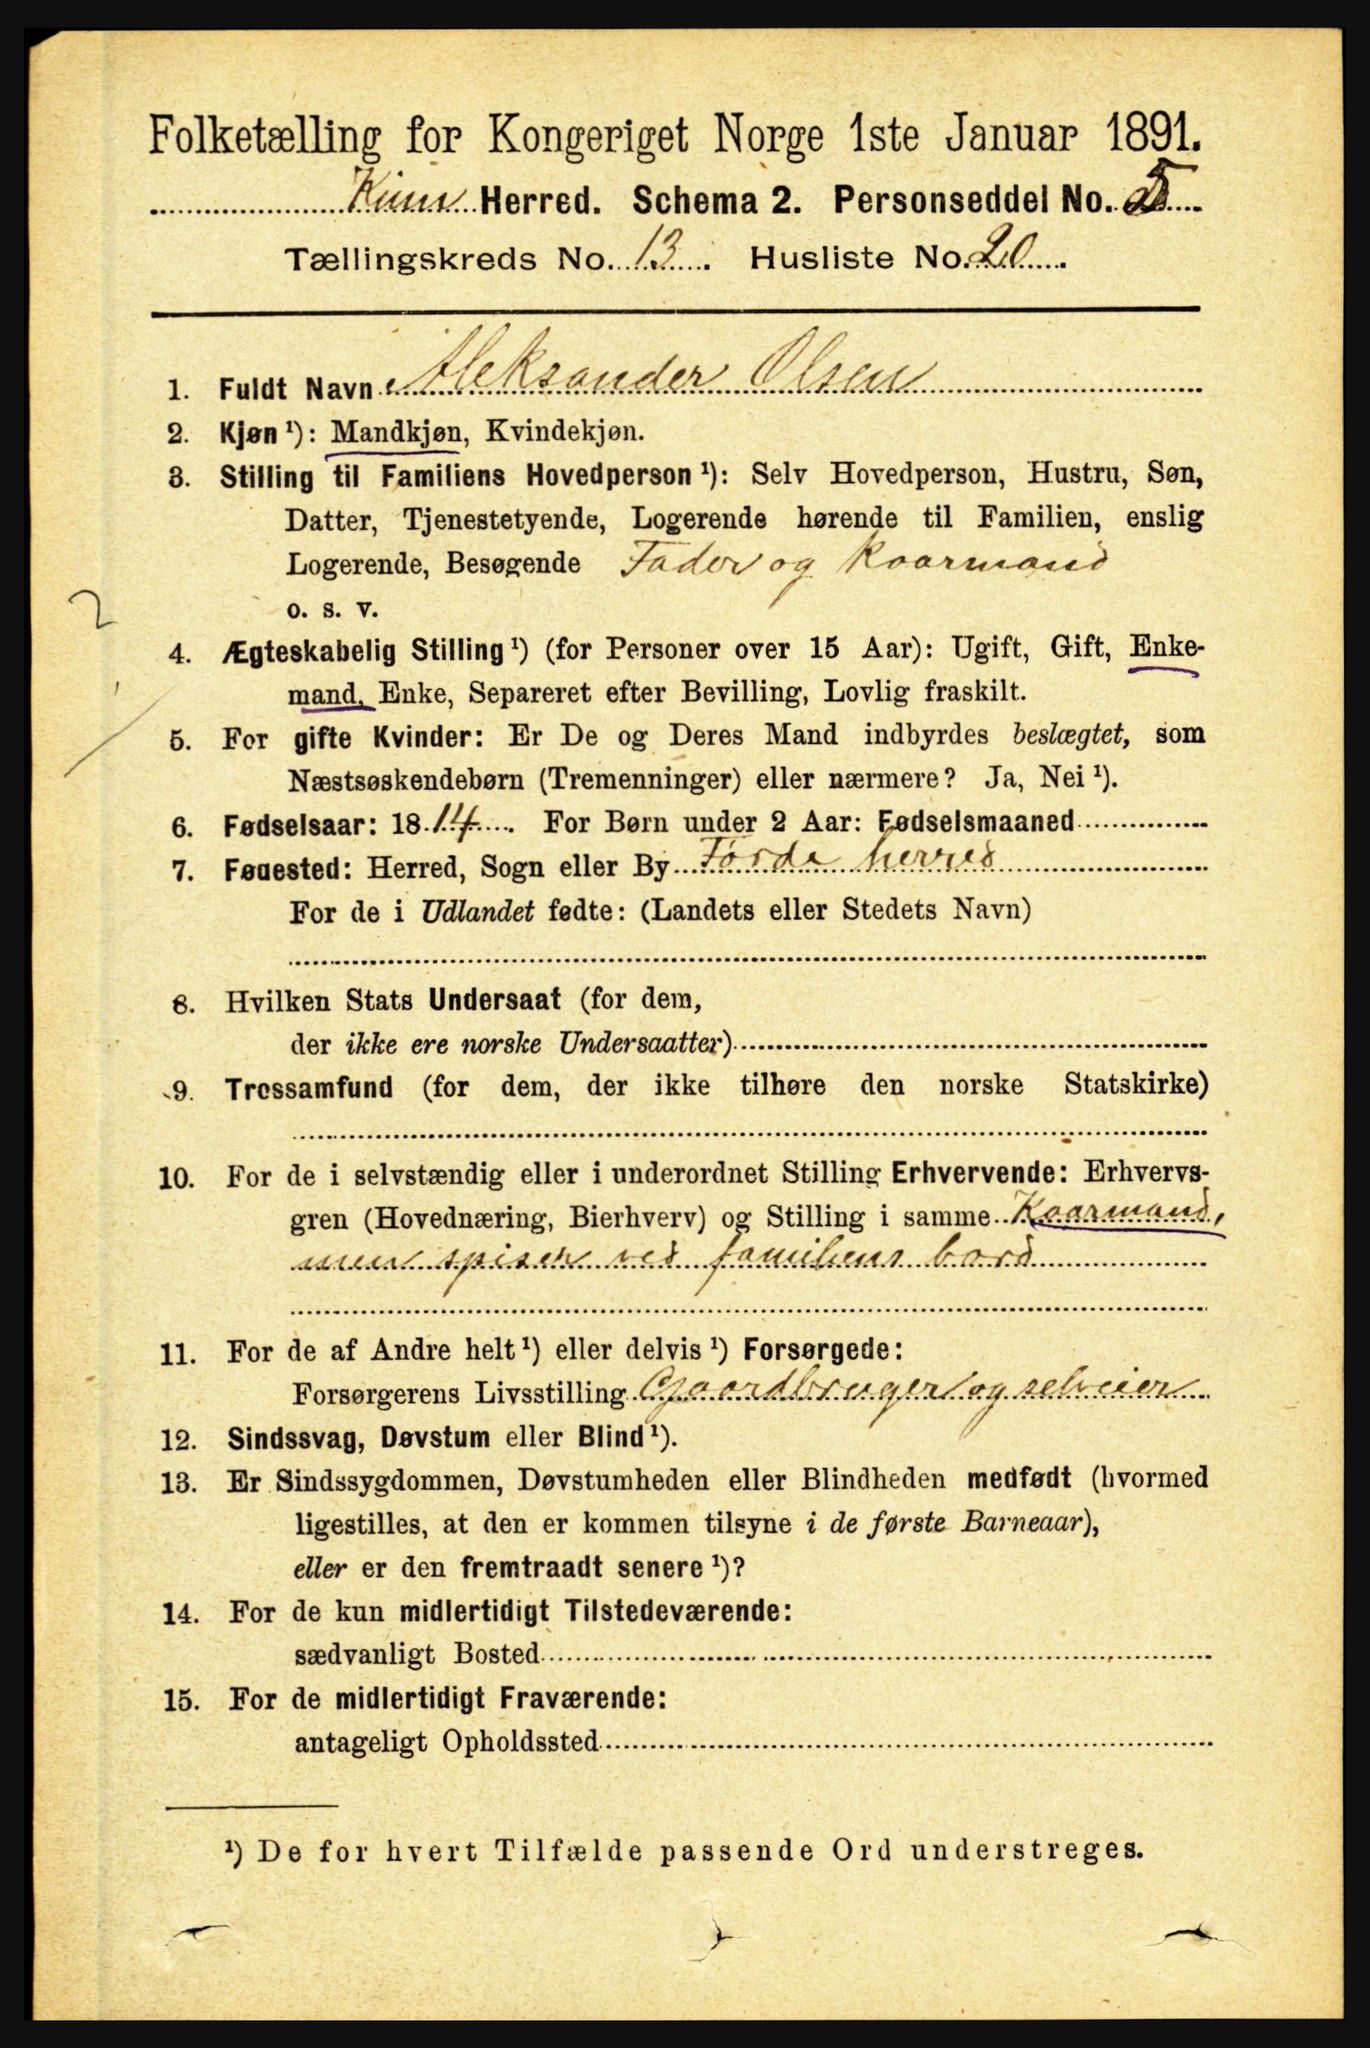 Folketælling for Kongeriget Norge 1ste Januar 1891.
Kinn Herred. Schema 2. Personseddel No. 5
Tællingskreds No. 13. Husliste No. 20
1. Fuldt Navn Aleksander Olsen
2. Kjøn ¹): Mandkjøn, Kvindekjøn.
3. Stilling til Familiens Hovedperson ¹): Selv Hovedperson, Hustru, Søn,
Datter, Tjenestetyende, Logerende hørende til Familien, enslig
Logerende, Besøgende Fader og Kaarmand
o. s. v.
2
4. Ægteskabelig Stilling ¹) (for Personer over 15 Aar): Ugift, Gift, Enke-
mand, Enke, Separeret efter Bevilling, Lovlig fraskilt.
5. For gifte Kvinder: Er De og Deres Mand indbyrdes beslægtet, som
Næstsøskendebørn (Tremenninger) eller nærmere? Ja, Nei ¹).
6. Fødselsaar: 1814. For Børn under 2 Aar: Fødselsmaaned
7. Føuested: Herred, Sogn eller By Førde herred
For de i Udlandet fødte: (Landets eller Stedets Navn)
8. Hvilken Stats Undersaat (for dem,
der ikke ere norske Undersaatter)
9. Trossamfund (for dem, der ikke tilhøre den norske Statskirke)
10. For de i selvstændig eller i underordnet Stilling Erhvervende: Erhvervs-
gren (Hovednæring, Bierhverv) og Stilling i samme Kaarmand,
men spiser ved familiens bord
11. For de af Andre helt ¹) eller delvis ¹) Forsørgede:
Forsørgerens Livsstilling Gaardbruger og selveier
12. Sindssvag, Døvstum eller Blind ¹).
13. Er Sindssygdommen, Døvstumheden eller Blindheden medfødt (hvormed
ligestilles, at den er kommen tilsyne i de første Barneaar),
eller er den fremtraadt senere ¹)?
14. For de kun midlertidigt Tilstedeværende:
sædvanligt Bosted
15. For de midlertidigt Fraværende:
antageligt Opholdssted
¹) De for hvert Tilfælde passende Ord understreges.